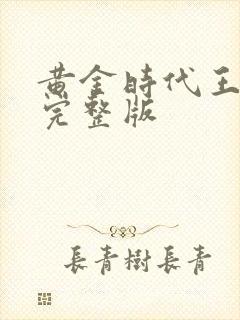 黄金時代王
完整版
長青樹長青